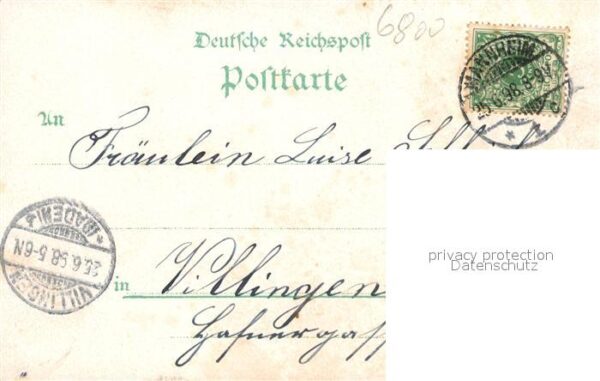 6800
Deutsche Reichspost
Postkarte
MANNHEIM
25.6.98.8-9V.
c
An
Fräulein Luise
privacy protection
Datenschutz
VILLINGEN
25.6.98.5-6N.
(BADEN)
in Villingen
Hafnergass